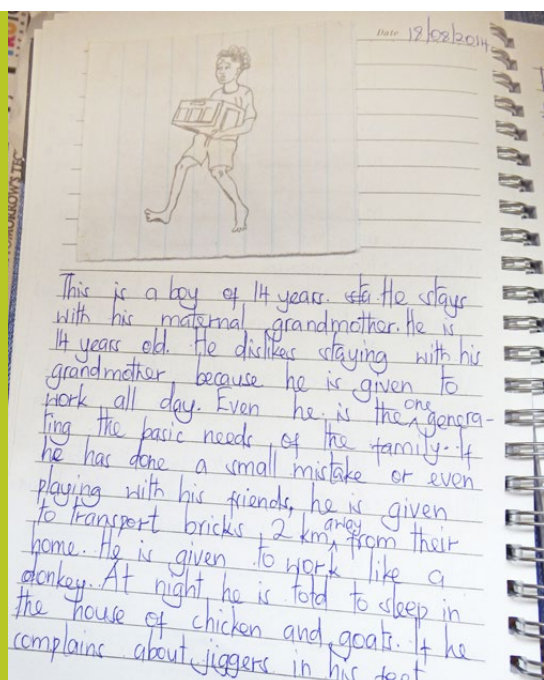 Date 18/08/2014
This is a boy of 14 years. sta. He stays
with his maternal grandmother. He is
14 years old. He dislikes staying with his
grandmother because he is given to
work all day. Even he is the one genera-
ting the basic needs, of the family. If
he has done a small mistake or even
playing with his friends, he is given
to transport bricks, 2 km away from their
home. He is given to work like a
donkey. At night he is told to sleep in
the house of chicken and goats. If he
complains about jiggers in his feet
TOMORROW'S